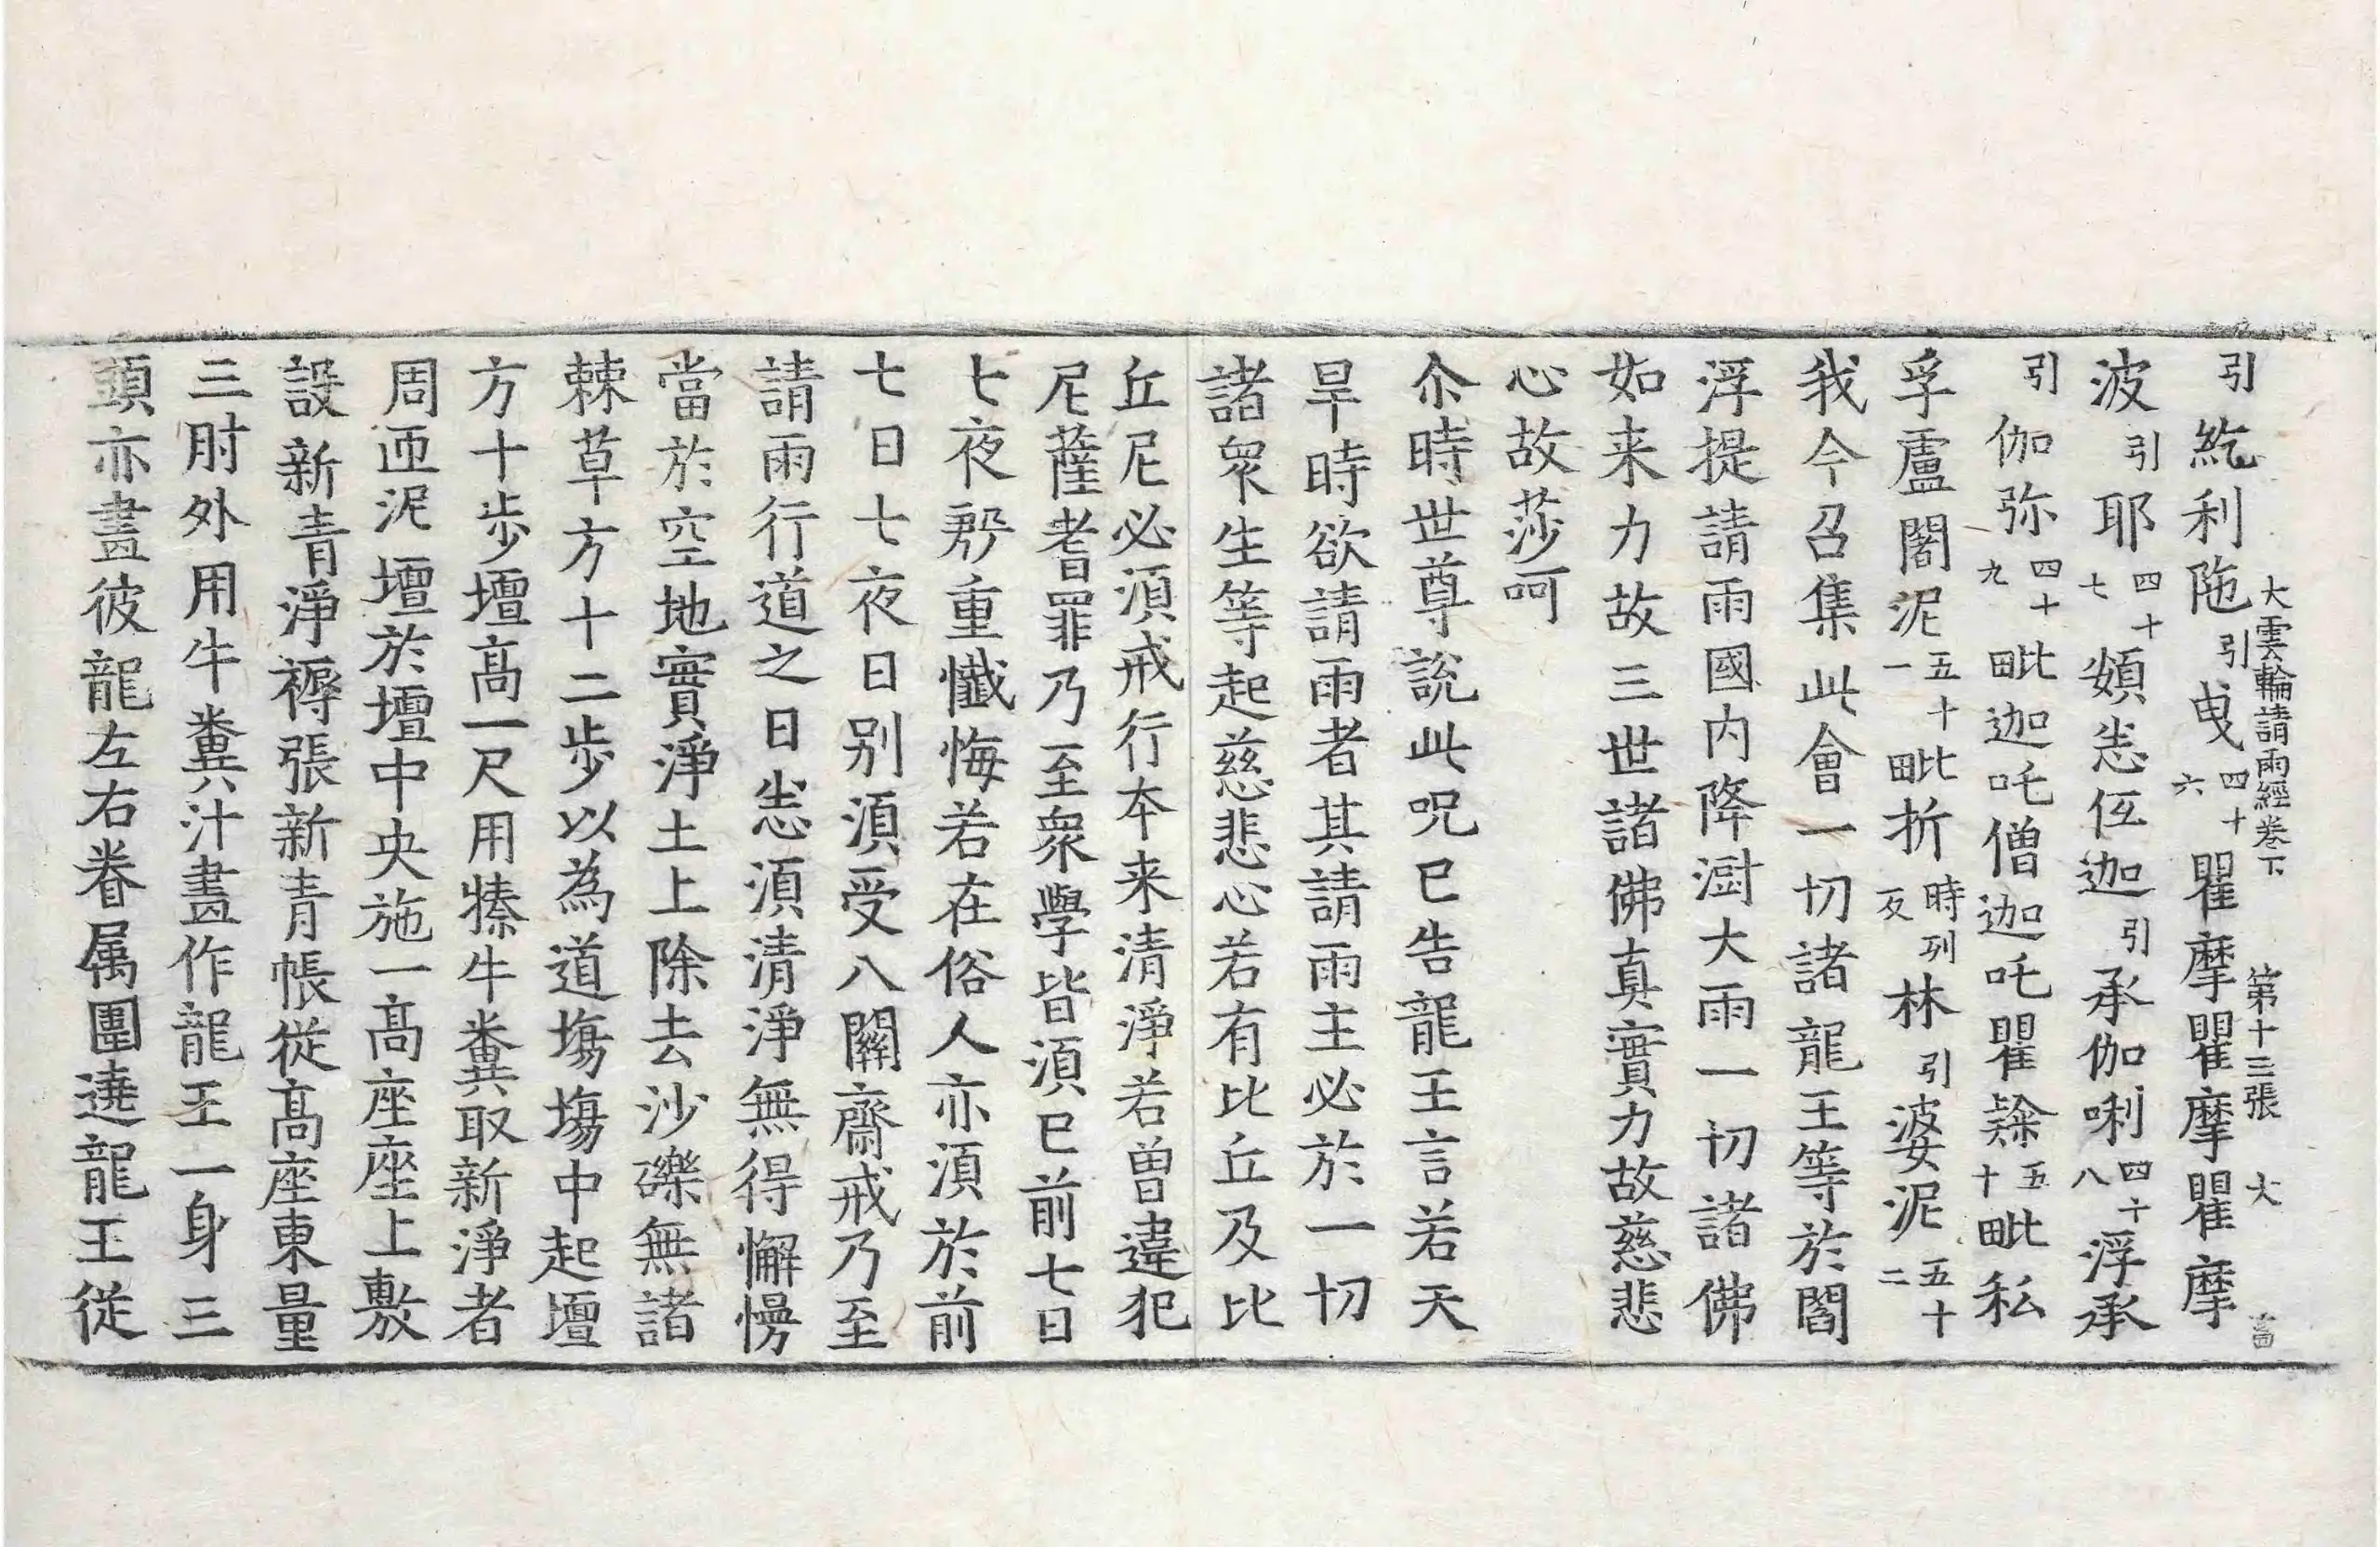 大雲輪請雨經卷下　第十三張　大
引紇利陁引曳四十六瞿摩瞿摩瞿摩
波引耶四十七頞恙伍迦引承伽唎四十八浮承
引伽弥四十九毗迦吒僧迦吒瞿㸑五十毗私
孚盧闍泥五十一毗折時列反林引婆泥五十二
我今召集此會一切諸龍王等於閻
浮提請雨國內降澍大雨一切諸佛
如来力故三世諸佛真實力故慈悲
心故莎呵
尒時世尊說此呪已告龍王言若天
旱時欲請雨者其請雨主必於一切
諸衆生等起慈悲心若有比丘及比
丘尼必湏戒行夲来清淨若曾違犯
尼薩耆罪乃至衆學皆湏已前七日
七夜殷重懺悔若在俗人亦湏於前
七日七夜日別湏受八關齋戒乃至
請雨行道之日悉湏清淨無得懈慢
當於空地實淨土上除去沙礫無諸
棘草方十二步以為道塲塲中起壇
方十步壇高一尺用㹀牛糞取新淨者
周匝泥壇於壇中央施一高座座上敷
設新青淨褥張新青帳從高座東量
三肘外用牛糞汁畫作龍王一身三
頭亦畫彼龍左右眷属圍遶龍王從